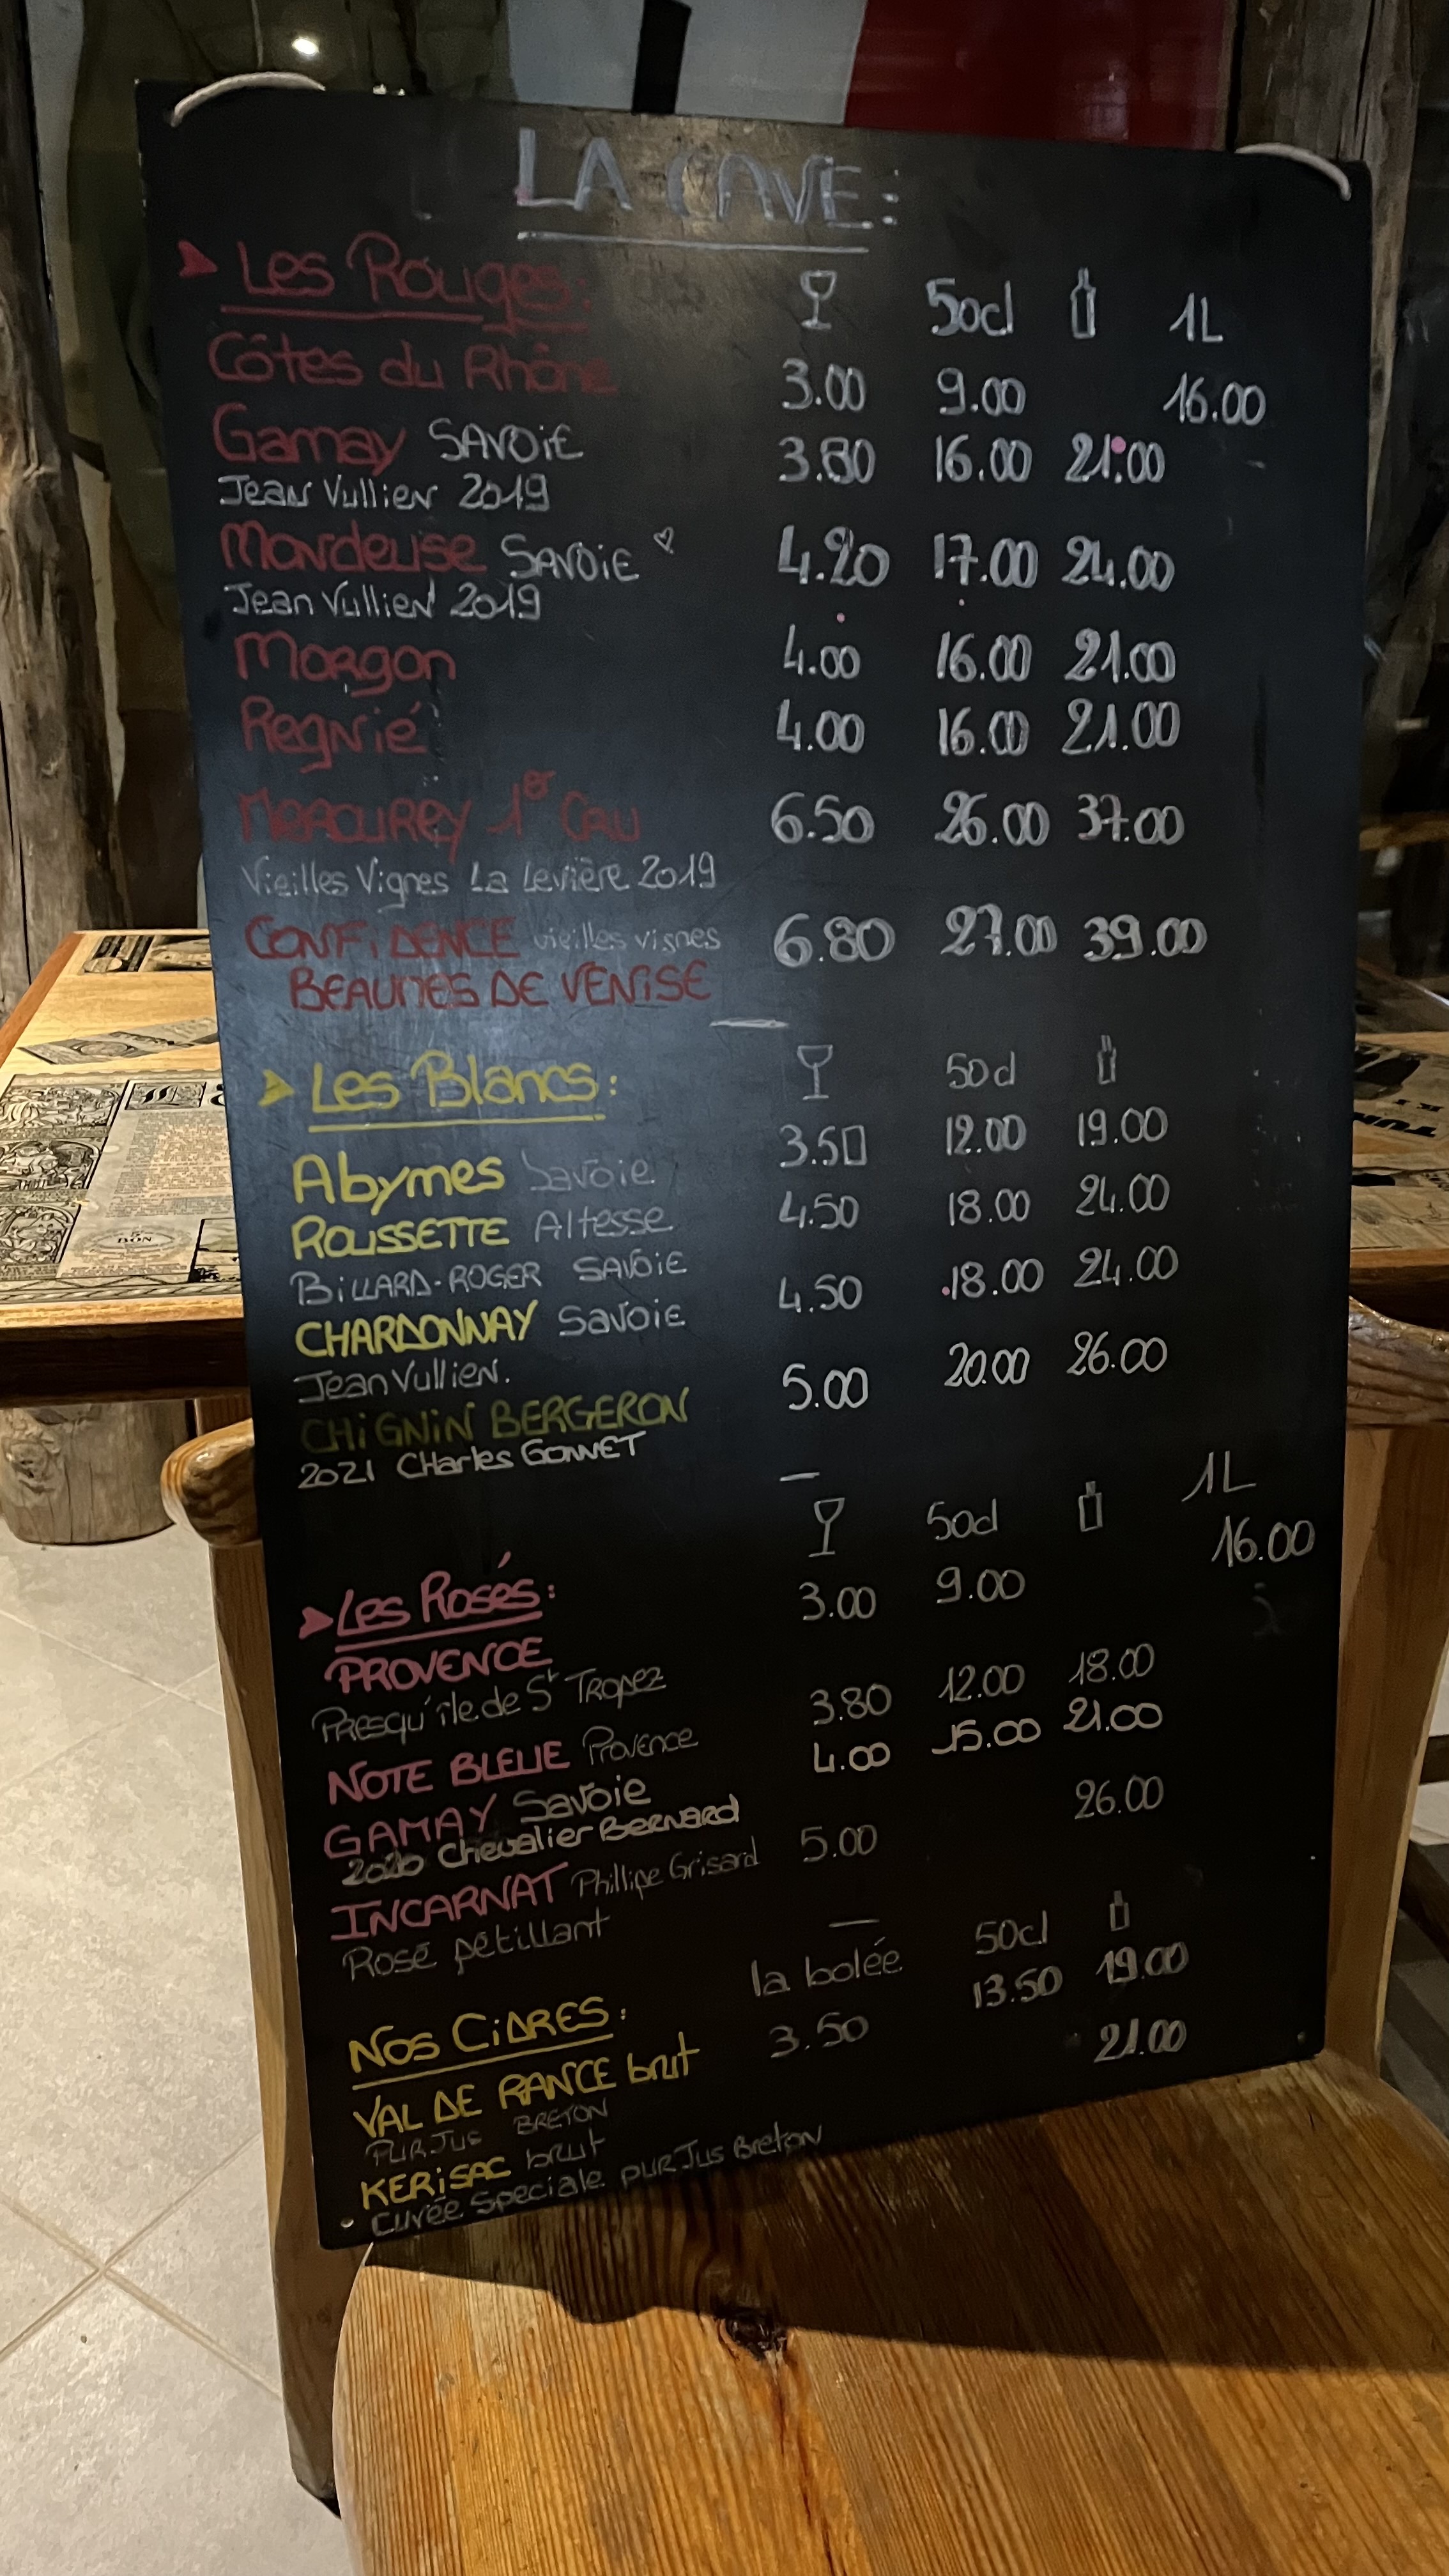 LA CAVE:
Les Rouges: 50cl 1L
Côtes du Rhône 3.00 9.00 16.00
Gamay SAVOIE 3.80 16.00 21.00
Jean Vullien 2019
Mondeuse SAVOIE 4.20 17.00 24.00
Jean Vullien 2019
Morgon 4.00 16.00 21.00
Regnié 4.00 16.00 21.00
MERCUREY 1er CRU 6.50 26.00 37.00
Vieilles Vignes La Levière 2019
CONFIDENCE vieilles vignes 6.80 27.00 39.00
BEAUMES DE VENISE
Les Blancs: 50cl
Abymes Savoie 3.50 12.00 19.00
ROUSSETTE Altesse 4.50 18.00 24.00
BILLARD-ROGER SAVOIE
CHARDONNAY Savoie 4.50 18.00 24.00
Jean Vullien.
CHIGNIN BERGERON 5.00 20.00 26.00
2021 CHarles GONNET
Les Rosés: 50cl 1L
PROVENCE 3.00 9.00 16.00
PRESQU'île de St TROPEZ
NOTE BLEUE Provence 3.80 12.00 18.00
GAMAY Savoie 4.00 15.00 21.00
2020 Chevalier Bernard
INCARNAT Phillipe Grisard 5.00 26.00
Rosé pétillant
NOS CIDRES: la bolée 50cl
VAL DE RANCE brut 3.50 13.50 19.00
PUR JUS BRETON
KERISAC brut 21.00
Cuvée Speciale pur Jus Breton